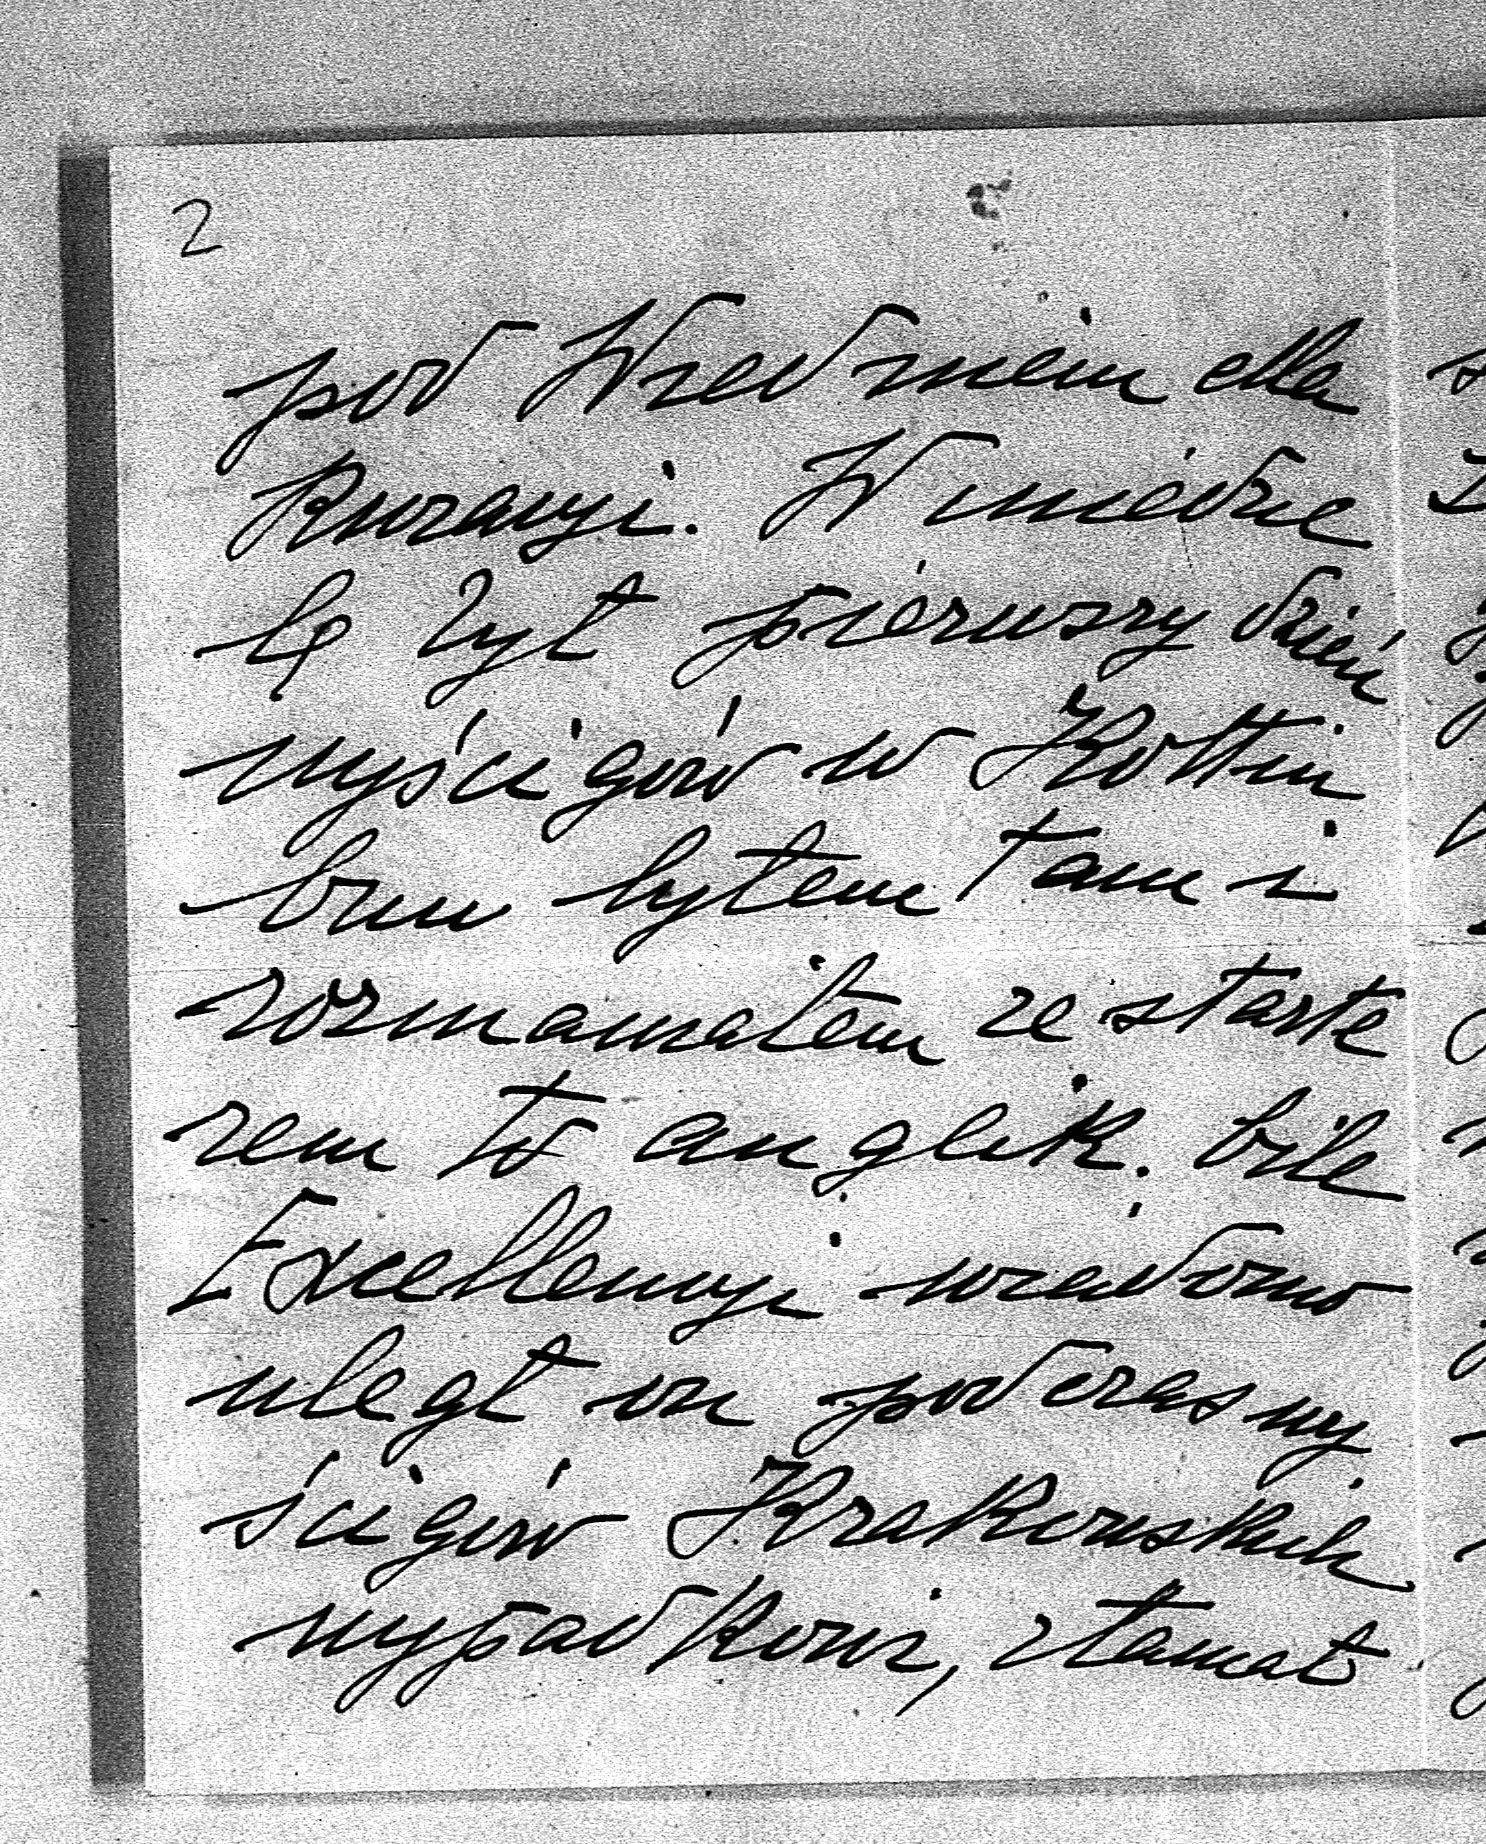 2
pod Wiedniem dla
kuracyi. W niedzie
lę był pierwszy dzień
wyścigów w Kottin
brun byłem tam i
rozmawiałem ze starte
rem to anglik. bile
Excellencyi wiadomo
uległ on podczas wy
ścigów Krakowskich
wypadkowi, złamał